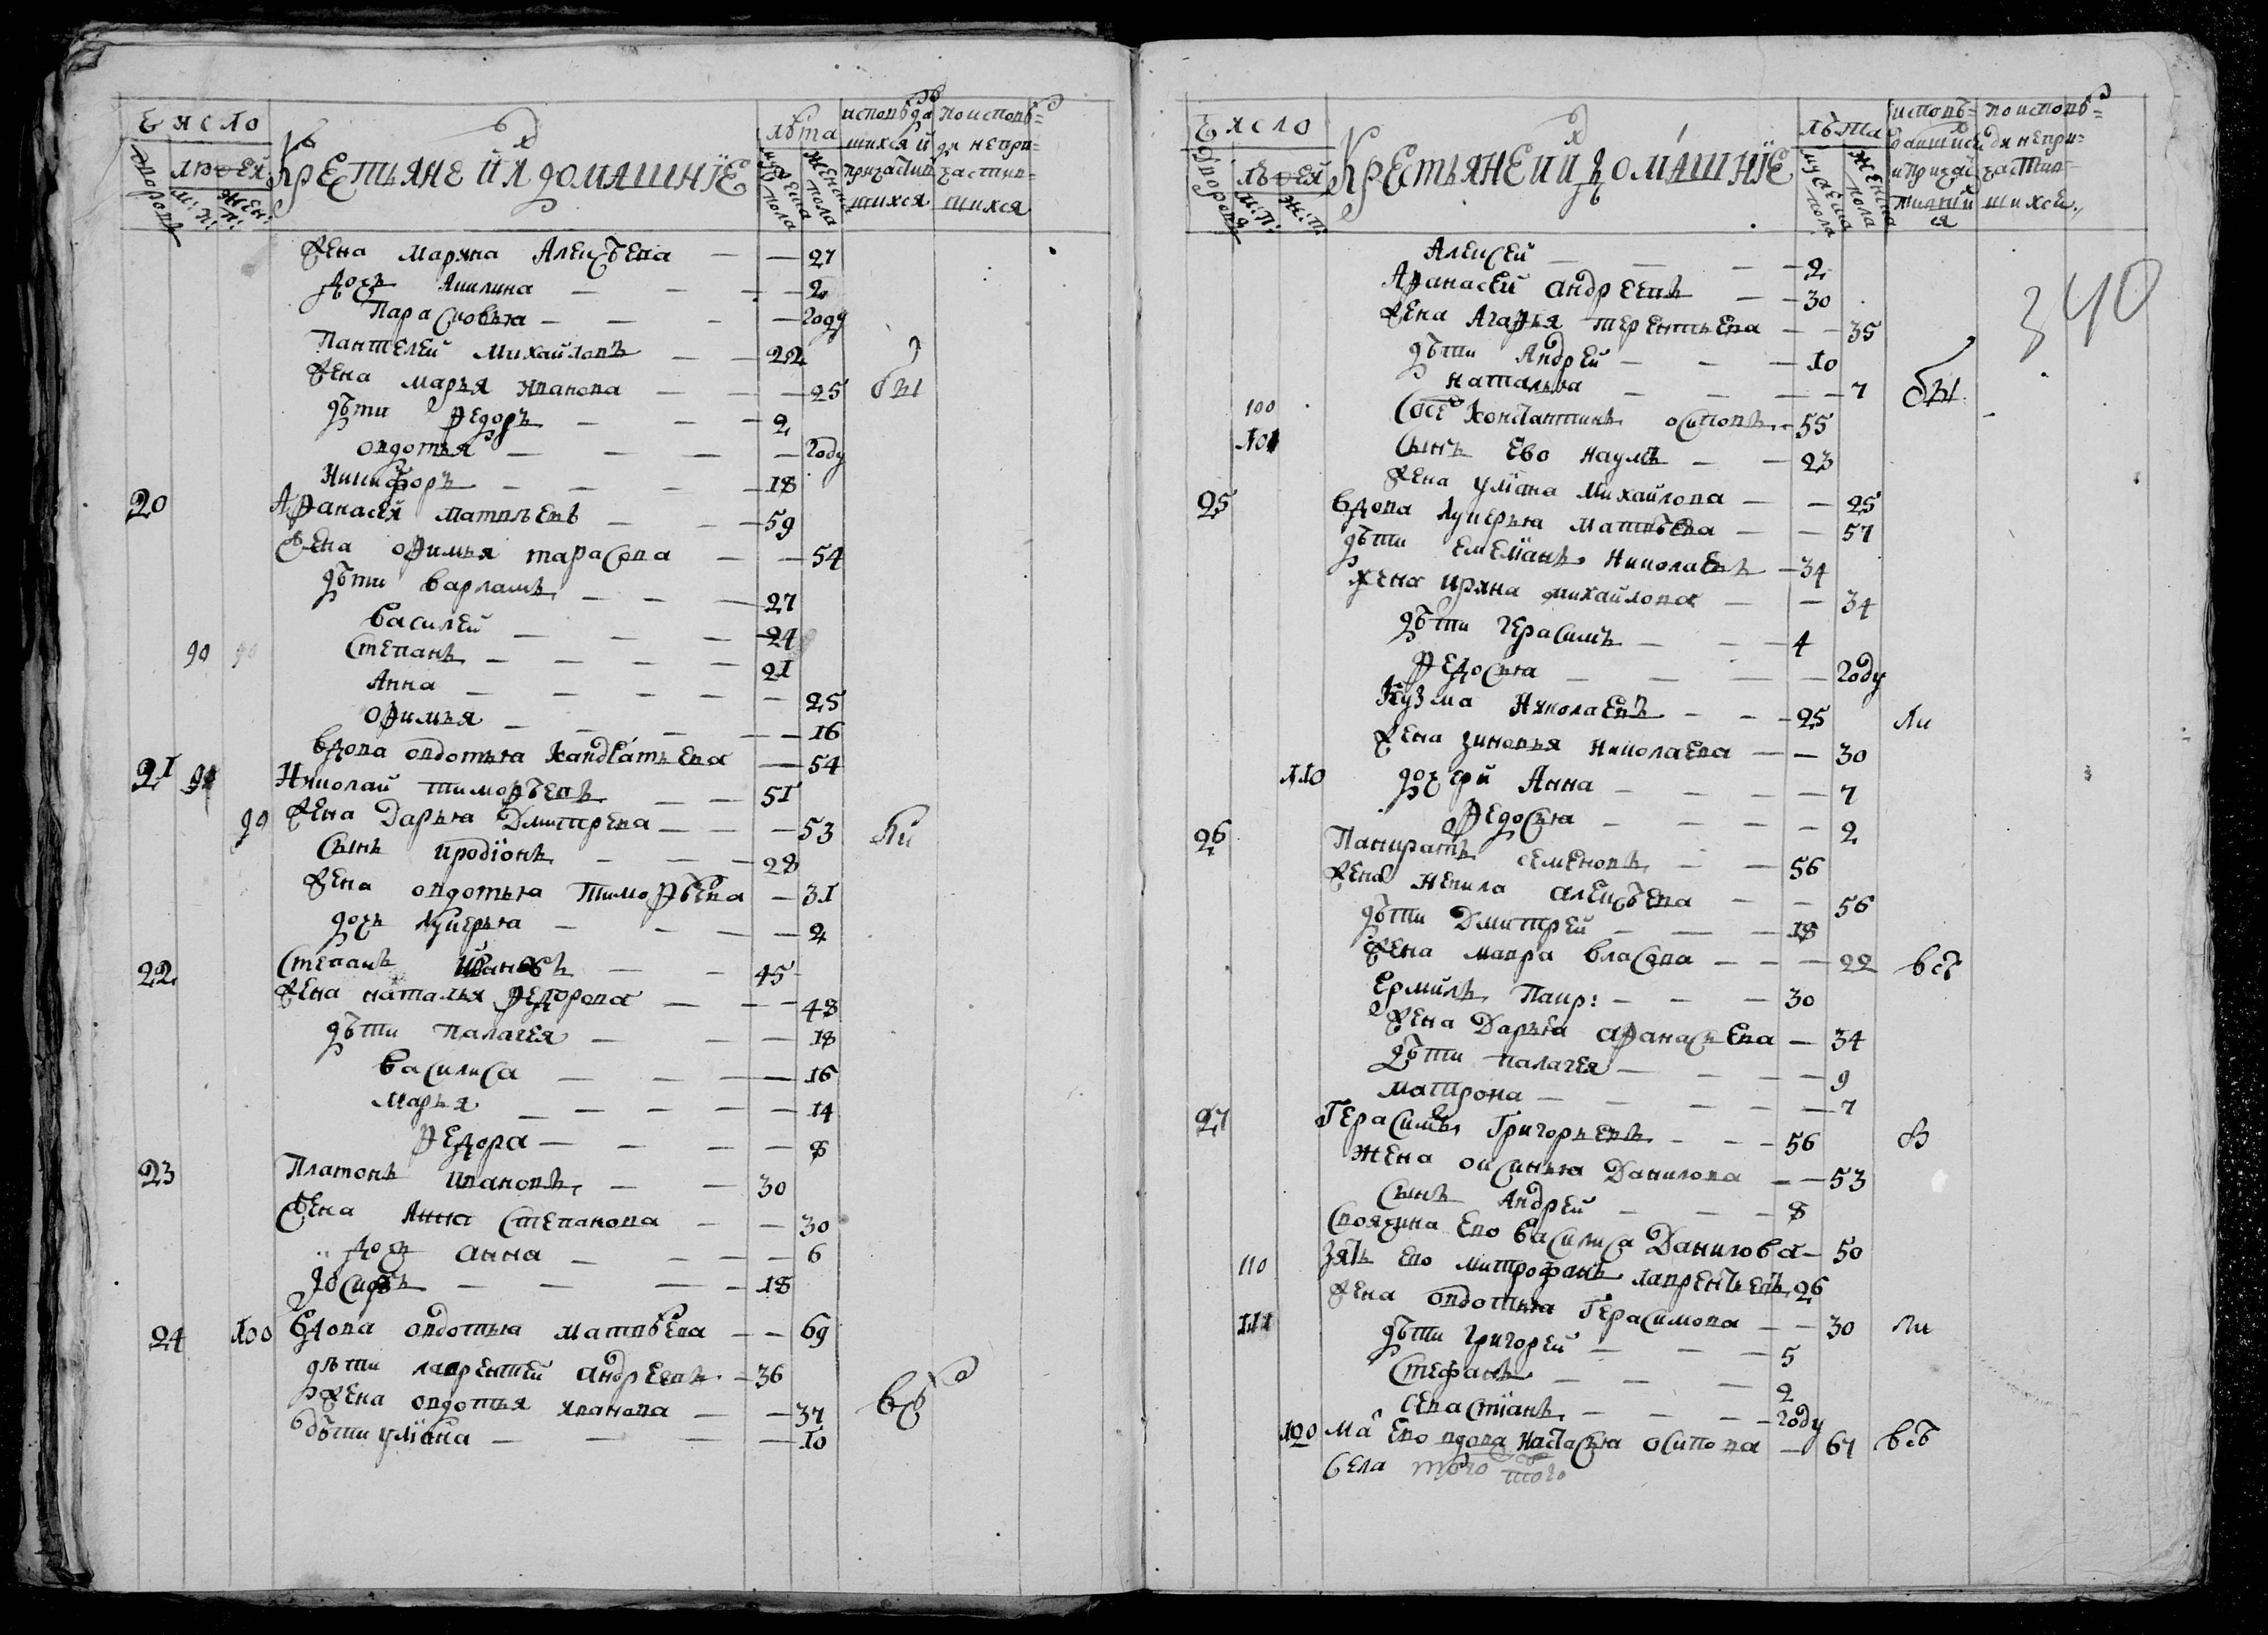 Число
людей
дворовъ
м: п:
жен: п:
Крестьяне и ихъ домашнїе
лѣта
мужеска пола
женска пола
исповѣда
шихся и
причастив
шихся
по исповѣ=
ди непри=
частив=
шихся
жена Маряна Алексѣева — — 27
дочь Акилина — — — 2
Парасковья — — — году
Пантелей Михайловъ — — 22
жена Марья Иванова — — 25 бы
дѣти Ѳедоръ — — — 2
Овдотья — — — — году
Никифоръ — — — — 18
20 Аѳанасей Матвѣевъ — — 59
жена Оѳимья Тарасова — — 54
дѣти Варламъ — — — 27
Василей — — — 24
90 90 Степанъ — — — — 21
Анна — — — — — 25
Оѳимья — — — — 16
вдова Овдотья Кандратьева — 54
21 91 Николай Тимоѳѣевъ — — 51
90 жена Дарья Дмитрева — — — 53 ли
сынъ Иродїонъ — — — 28
жена Овдотья Тимоѳѣева — 31
дочь Лукерья — — — — 2
22 Степанъ Ивановъ — — 45
жена Наталья Ѳедорова — — — 48
дѣти Палагея — — — 18
Василиса — — — 16
Марья — — — — — 14
Ѳедора — — — — 8
23 Платонъ Ивановъ — — 30
жена Анна Степанова — — 30
дочь Анна — — — — 6
Иосифъ — — — — 18
24 100 Вдова Овдотья Матвѣева — — 69
дѣти Лаврентей Андреевъ — 36
жена Овдотья Иванова — — 37 всѣ
дѣти Улїяна — — — — 10
Число
дворовъ
людей
м: п:
ж: п:
Крестьяне и ихъ домашнїе
лѣта
мужеска пола
женска пола
исповѣ=
давшихся
и причас
тивши
ся
по исповѣ=
ди непри=
частив=
шихся
340
Алексей — — — 2
Аѳанасей Андреевъ — — 30
жена Агаѳья Терентьева — — 35
дѣти Андрей — — — 10
Наталья — — — — 7 бы
100 Константинъ Осиповъ — 55
101 сынъ ево Наумъ — — 23
жена Улїяна Михайлова — — 25
25 вдова Лукерья Матвѣева — — 57
дѣти Емельянъ Николаевъ — 34
жена Иряна Михайлова — — 34
дѣти Герасимъ — — — 4
Ѳедосья — — — — году
Кузма Николаевъ — — — 25 ли
жена Зиновья Николаева — — 30
110 дочери Анна — — — — 7
Ѳедосья — — — — 2
26 Панкратъ Семеновъ — — 56
жена Ненила Алексѣева — — 56
дѣти Дмитрей — — — 18
жена Мавра Власова — — — 22 всѣ
Ермилъ Панкр: — — — 30
жена Дарья Аѳанасьева — 34
дѣти Палагея — — — — 9
Матрона — — — — — 7
27 Герасимъ Григорьевъ — — — 56 в
жена Оксинья Данилова — — 53
сынъ Андрей — — — 8
своячина ево Василиса Данилова — 50
110 зять ево Митрофанъ Лаврентьевъ 26
жена Овдотья Герасимова — — 30 ли
111 дѣти Григорей — — — 5
Стефанъ — — — 2
Севастїанъ — — — году
120 ма ево вдова Настасья Осипова — 67 всѣ
села того
того